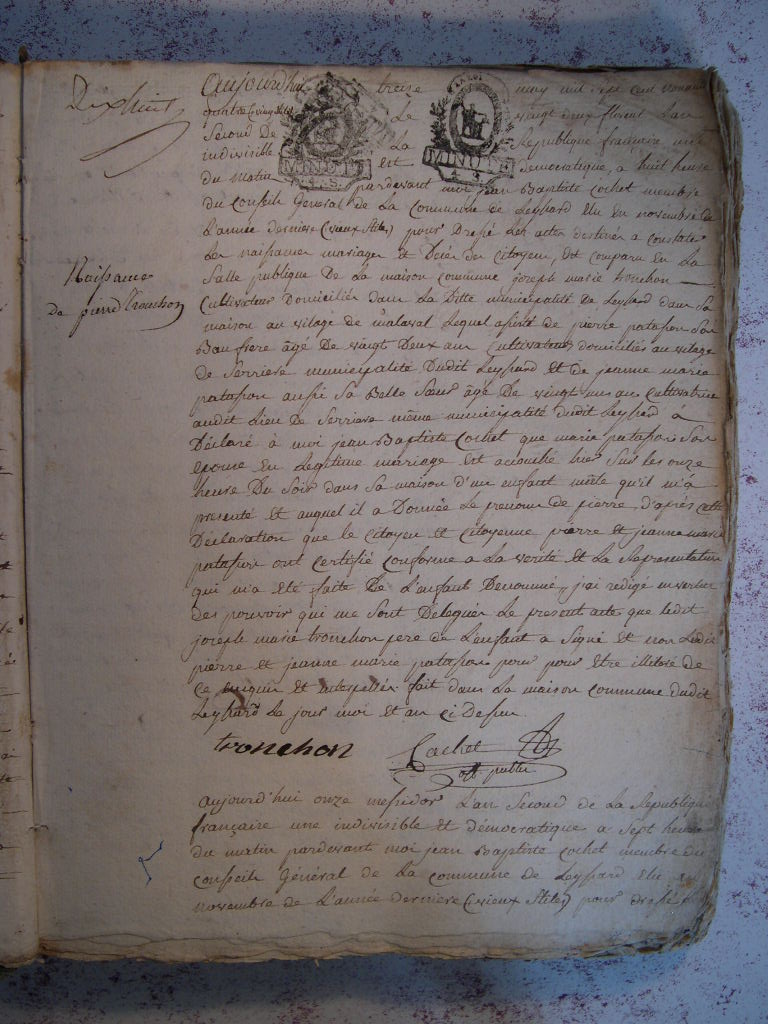 Dixhuit
Naissance
de pierre Tronchon
aujourd'huit treize may mil sept cent
quatre (vieux stile) Le vingt deux floreal L'an
Second De La Republique francaise une
indivisible Et democratique, a huit heure
du Matin pardevant moi jean Baptiste Cochet membre
du Conseil General de La Commune de Leyssard Elu En novembre de
L'année derniere (vieux stile) pour Dressé Les actes destinés a constater
Les naissances mariages et Décés des citoyens, Est comparu En La
Salle publique De La maison commune joseph marie tronchon
Cultivateur Domicilié dans La Ditte municipalité De Leyssard dans Sa
maison au vilage de malaval Lequel assisté de pierre patasson Son
Bau frere âgé De vingt Deux ans Cultivateur domicilié au vilage
de Serriere municipalité Dudit Leyssard Et de jeanne marie
patasson aussi Sa Belle Sœur âgé De vingt ans Cultivatrice
audit Lieu De Serriere même municipalité dudit Leyssard à
Déclaré à moi jean Baptiste Cochet que marie patasson Son
Epouse En Legitime mariage Est acouché hier Sur les onze
heure Du Soir dans Sa maison d'un enfant mâle qu'il m'a
presenté Et auquel il a Donnée Le prenom de pierre, d'après cette
Déclaration que Le Citoyen Et Citoyenne pierre et jeanne marie
patasson ont Certifié Conforme a La verité Et La Representation
qui m'a Eté faite De L'enfant Denommé, j'ai redigé en vertu
Des pouvoir qui me Sont Délégués Le present acte que ledit
joseph marie tronchon pere de L'enfant a Signé Et non Ledit
pierre Et jeanne marie patasson pour pour Etre illiteré de
Ce Enquis Et interpellés fait dans La maison commune dudit
Leyssard Le jour moi Et an Ci Dessus
tronchon Cochet
off. public
aujourd'hui onze messidor L'an Second de La Republique
française une indivisible Et démocratique a Sept heure
du matin pardevant moi jean Baptiste Cochet membre du
Conseil Général de La Commune de Leyssard Elu en
novembre de L'année derniere (vieux stile) pour dressé
LA LOI
MINUTE
MINUTE